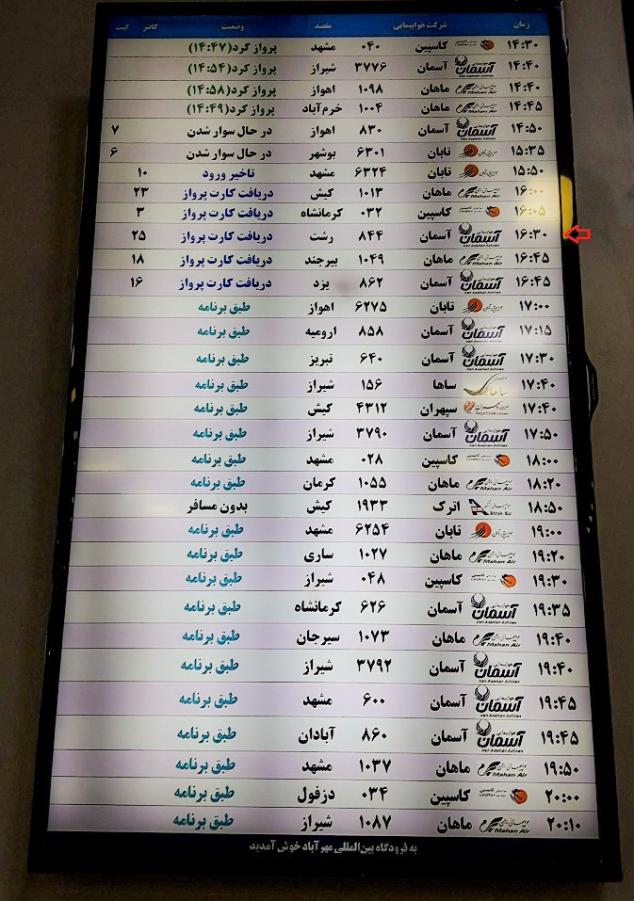 زمان شرکت هواپیمایی مقصد وضعیت کانتر گیت
۱۴:۳۰ کاسپین ۰۴۰ مشهد پرواز کرد(۱۴:۴۷)
۱۴:۴۰ آسمان ۳۷۷۶ شیراز پرواز کرد(۱۴:۵۴)
۱۴:۴۰ Mahan Air ماهان ۱۰۹۸ اهواز پرواز کرد(۱۴:۵۸)
۱۴:۴۵ Mahan Air ماهان ۱۰۰۴ خرم‌آباد پرواز کرد(۱۴:۴۹)
۱۴:۵۰ آسمان ۸۳۰ اهواز در حال سوار شدن ۷
۱۵:۳۵ تابان ۶۳۰۱ بوشهر در حال سوار شدن ۶
۱۵:۵۰ تابان ۶۳۲۴ مشهد تاخیر ورود ۱۰
۱۶:۰۰ Mahan Air ماهان ۱۰۱۳ کیش دریافت کارت پرواز ۲۳
۱۶:۰۵ کاسپین ۰۳۲ کرمانشاه دریافت کارت پرواز ۳
۱۶:۳۰ آسمان آسمان ۸۴۴ رشت دریافت کارت پرواز ۲۵
۱۶:۴۵ Mahan Air ماهان ۱۰۴۹ بیرجند دریافت کارت پرواز ۱۸
۱۶:۴۵ آسمان آسمان ۸۶۲ یزد دریافت کارت پرواز ۱۶
۱۷:۰۰ تابان ۶۲۷۵ اهواز طبق برنامه
۱۷:۱۵ آسمان آسمان ۸۵۸ ارومیه طبق برنامه
۱۷:۳۰ آسمان آسمان ۶۴۰ تبریز طبق برنامه
۱۷:۴۰ ساها ۱۵۶ شیراز طبق برنامه
۱۷:۴۰ سپهران ۴۳۱۲ کیش طبق برنامه
۱۷:۵۰ آسمان آسمان ۳۷۹۰ شیراز طبق برنامه
۱۸:۰۰ کاسپین ۰۲۸ مشهد طبق برنامه
۱۸:۲۰ Mahan Air ماهان ۱۰۵۵ کرمان طبق برنامه
۱۸:۵۰ اترک ۱۹۳۳ کیش بدون مسافر
۱۹:۰۰ تابان ۶۲۵۴ مشهد طبق برنامه
۱۹:۲۰ Mahan Air ماهان ۱۰۲۷ ساری طبق برنامه
۱۹:۳۰ کاسپین ۰۴۸ شیراز طبق برنامه
۱۹:۳۵ آسمان آسمان ۶۲۶ کرمانشاه طبق برنامه
۱۹:۴۰ Mahan Air ماهان ۱۰۷۳ سیرجان طبق برنامه
۱۹:۴۰ آسمان آسمان ۳۷۹۲ شیراز طبق برنامه
۱۹:۴۵ آسمان آسمان ۶۰۰ مشهد طبق برنامه
۱۹:۴۵ آسمان آسمان ۸۶۰ آبادان طبق برنامه
۱۹:۵۰ Mahan Air ماهان ۱۰۳۷ مشهد طبق برنامه
۲۰:۰۰ کاسپین ۰۳۴ دزفول طبق برنامه
۲۰:۱۰ Mahan Air ماهان ۱۰۸۷ شیراز طبق برنامه
به فرودگاه بین‌المللی مهرآباد خوش آمدید